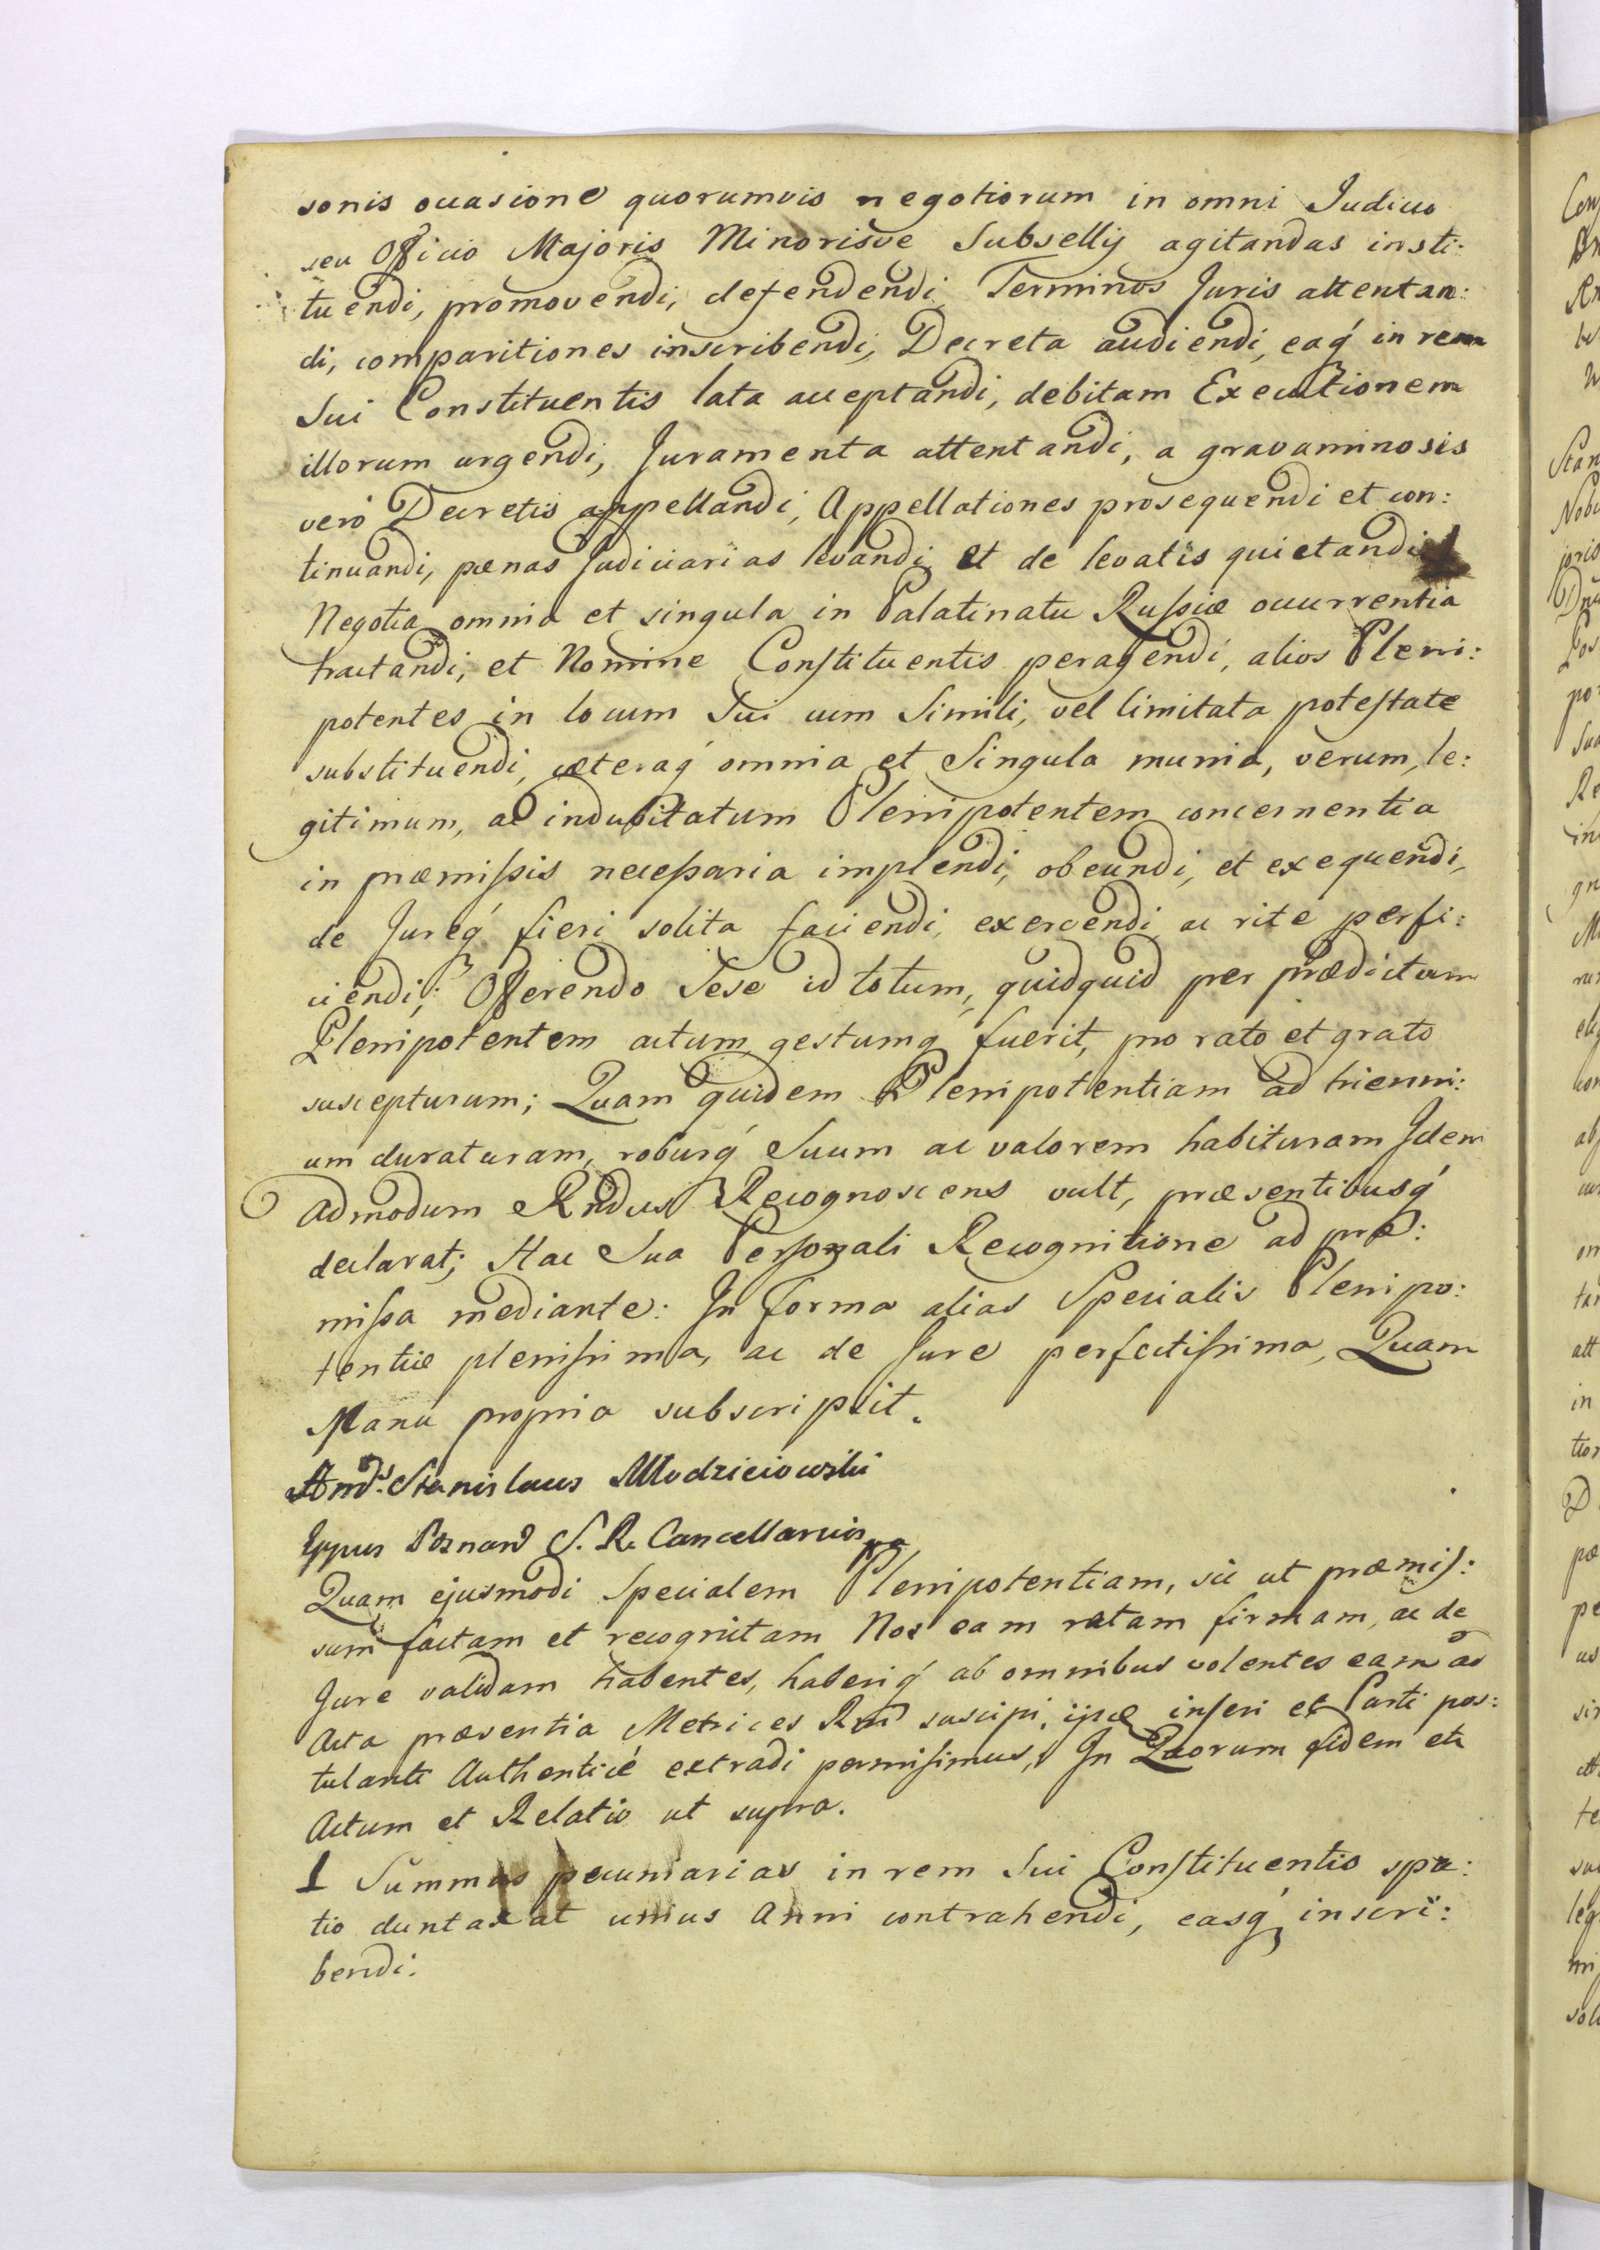 sonis occasione quorumvis negotiorum in omni Judicio
seu Officio Majoris Minorisve Subsellij agitandas insti:
tuendi, promovendi, defendendi, Terminos Juris attentan:
di, comparitiones inscribendi, Decreta audiendi, eaq́ in rem
Sui Constituentis lata acceptandi, debitam Executionem
illorum urgendi, Juramenta attentandi, a gravaminosis
veró Decretis appellandi, Appellationes prosequendi et con:
tinuandi, pænas Judiciarias levandi et de levatis quietandi
Negotia omnia et singula in Palatinatu Rußiæ occurrentia
tractandi, et Nomine Constituentis peragendi, alios Pleni:
potentes in locum Sui cum Simili, vel limitata potestate
substituendi, cæteraq́ omnia et Singula munia, verum, le:
gitimum, ac indubitatum Plenipotentem concernentia
in præmißis neceßaria implendi, obeundi, et exequendi,
de Jureq́ fieri solita faciendi, exercendi ac rite perfi:
ciendi; Offerendo Sese id totum, quidquid per prædictum
Plenipotentem actum gestumq́ fuerit, pro rato et grato
suscepturum; Quam quidem Plenipotentiam ad trienni:
um duraturam, roburq́ Suum ac valorem habituram Idem
Admodum Rndus Recognoscens vult, præsentibusq́
declarat; Hac Sua Personali Recognitione ad præ:
mißa mediante: In forma alias Specialis Plenipo:
tentiæ plenißima, ac de Jure perfectißima, Quam
Manu propria subscripsit.
And: Stanislaus Młodzieiowski
Eppus Posnan S. R. Cancellarius
Quam ejusmodi Specialem Plenipotentiam, sic ut præmis:
sum factam et recognitam Nos eam ratam firmam, ac de
Jure validam habentes, haberiq́ ab omnibus volentes eam ad
Acta præsentia Metrices Rni suscipi, ijsq inseri et Parti pos:
tulanti Authenticé extradi permisimus, In Quorum fidem etc
Actum et Relatio ut supra.
Summas pecuniarias in rem Sui Constituentis spa:
tio duntaxat unius Anni contrahendi, easq́ inscri:
bendi.